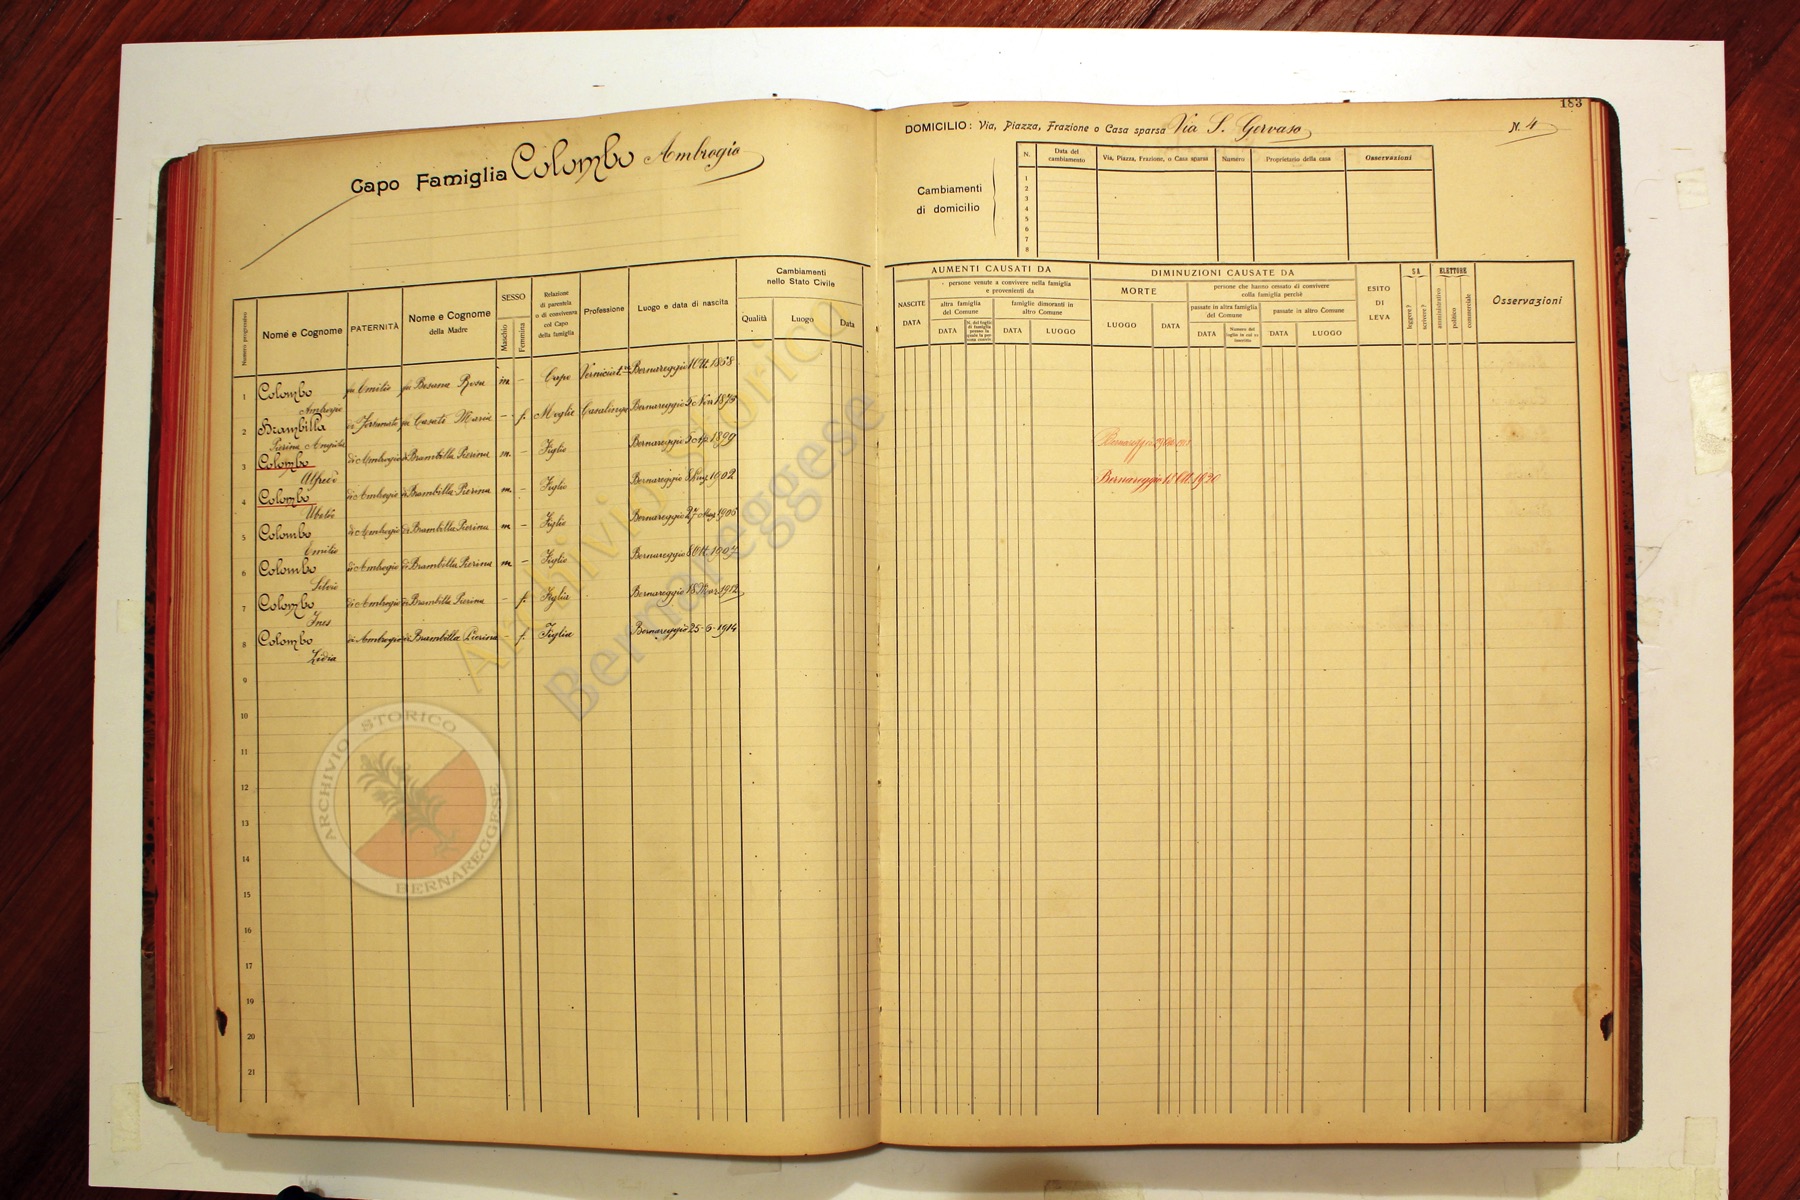 183
Capo Famiglia Colombo Ambrogio
DOMICILIO: Via, Piazza, Frazione o Casa sparsa Via S. Gervaso
N. 4
Cambiamenti di domicilio
N. Data del cambiamento Via, Piazza, Frazione, o Casa sparsa Numero Proprietario della casa Osservazioni
1
2
3
4
5
6
7
8
Numero progressivo
Nome e Cognome
PATERNITÀ
Nome e Cognome della Madre
SESSO
Maschio
Femmina
Relazione di parentela o di convivenza col Capo della famiglia
Professione
Luogo e data di nascita
Cambiamenti nello Stato Civile
Qualità
Luogo
Data
AUMENTI CAUSATI DA
NASCITE
DATA
persone venute a convivere nella famiglia e provenienti da
altra famiglia del Comune
DATA
famiglie dimoranti in altro Comune
DATA
LUOGO
DIMINUZIONI CAUSATE DA
MORTE
LUOGO
DATA
persone che hanno cessato di convivere colla famiglia perchè
passate in altra famiglia del Comune
DATA
passate in altro Comune
DATA
LUOGO
ESITO DI LEVA
SA
leggere?
scrivere?
ELETTORE
amministrativo
politico
commerciale
Osservazioni
1 Colombo Ambrogio fu Emilio fu Besana Rosa m – Capo Bernareggio 1 Ott. 1868
2 Brambilla Pierina di Fortunato fu Casati Maria – f. Moglie Casalinga Bernareggio 5 Nov 1873
3 Colombo Alfredo di Ambrogio di Brambilla Pierina m. – Figlio Bernareggio 1899 Bernareggio
4 Colombo di Ambrogio di Brambilla Pierina m. – Figlio Bernareggio 8 1902 Bernareggio 18 Ott. 1920
5 Colombo Emilio di Ambrogio di Brambilla Pierina m – Figlio Bernareggio 27 Mag 1905
6 Colombo Silvio di Ambrogio di Brambilla Pierina m – Figlio Bernareggio 8 Ott.
7 Colombo Ines di Ambrogio di Brambilla Pierina – f. Figlia Bernareggio 18 Mar 1912
8 Colombo Lidia di Ambrogio di Brambilla Pierina – f. Figlia Bernareggio 25-6-1914
9
10
11
12
13
14
15
16
17
19
20
21
Archivio Storico
Bernareggese
ARCHIVIO STORICO
BERNAREGGESE